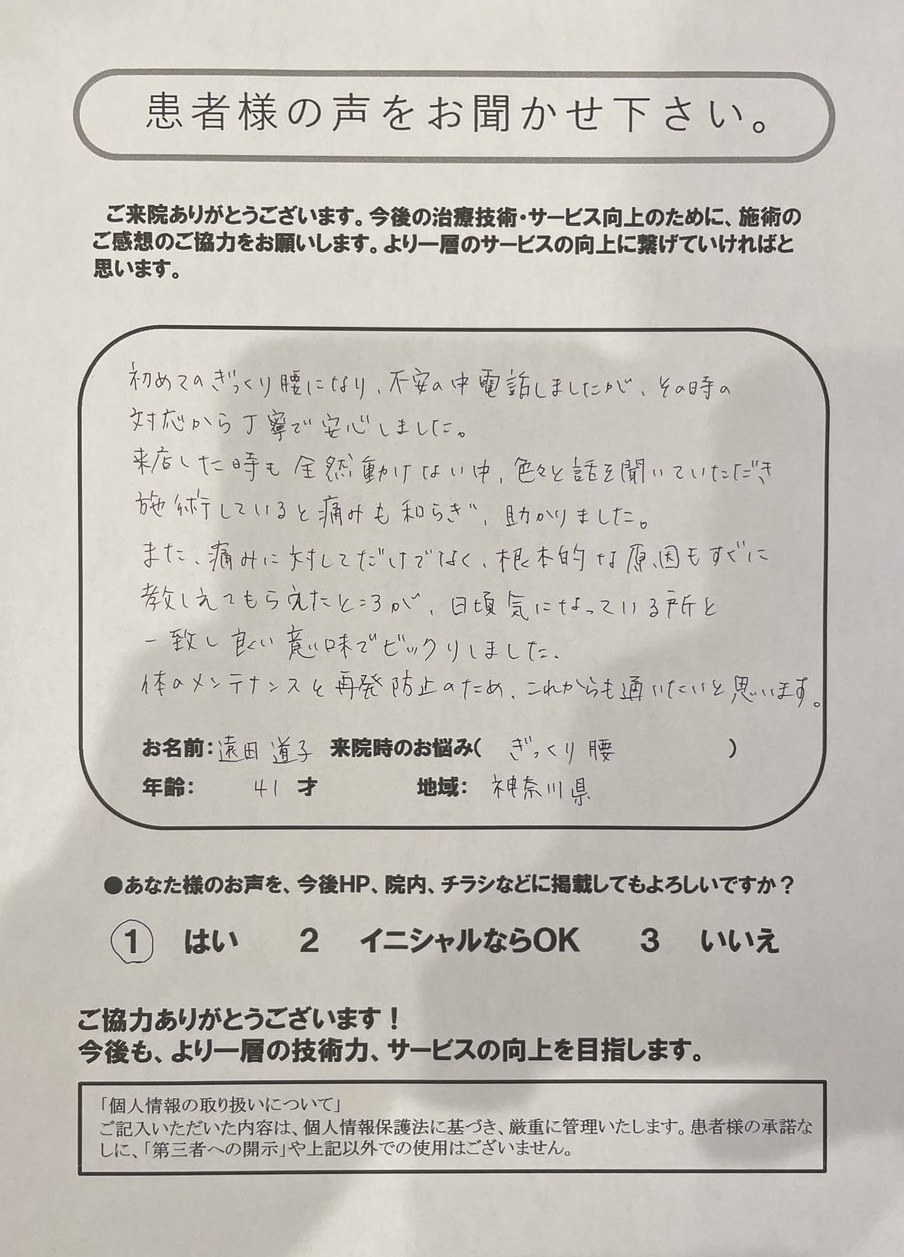 患者様の声をお聞かせ下さい。
ご来院ありがとうございます。今後の治療技術・サービス向上のために、施術の
ご感想のご協力をお願いします。より一層のサービスの向上に繋げていければと
思います。
初めてのぎっくり腰になり、不安の中電話しましたが、その時の
対応から丁寧で安心しました。
来店した時も全然動けない中、色々と話を聞いていただき
施術していると痛みも和らぎ、助かりました。
また、痛みに対してだけでなく、根本的な原因もすぐに
教しえてもらえたところが、日頃気になっている所と
一致し良い意味でビックリしました。
体のメンテナンスと再発防止のため、これからも通いたいと思います。
お名前：遠田 道子 来院時のお悩み( ぎっくり腰 )
年齢： 41 才 地域： 神奈川県
●あなた様のお声を、今後HP、院内、チラシなどに掲載してもよろしいですか？
1 はい 2 イニシャルならOK 3 いいえ
ご協力ありがとうございます！
今後も、より一層の技術力、サービスの向上を目指します。
「個人情報の取り扱いについて」
ご記入いただいた内容は、個人情報保護法に基づき、厳重に管理いたします。患者様の承諾な
しに、「第三者への開示」や上記以外での使用はございません。